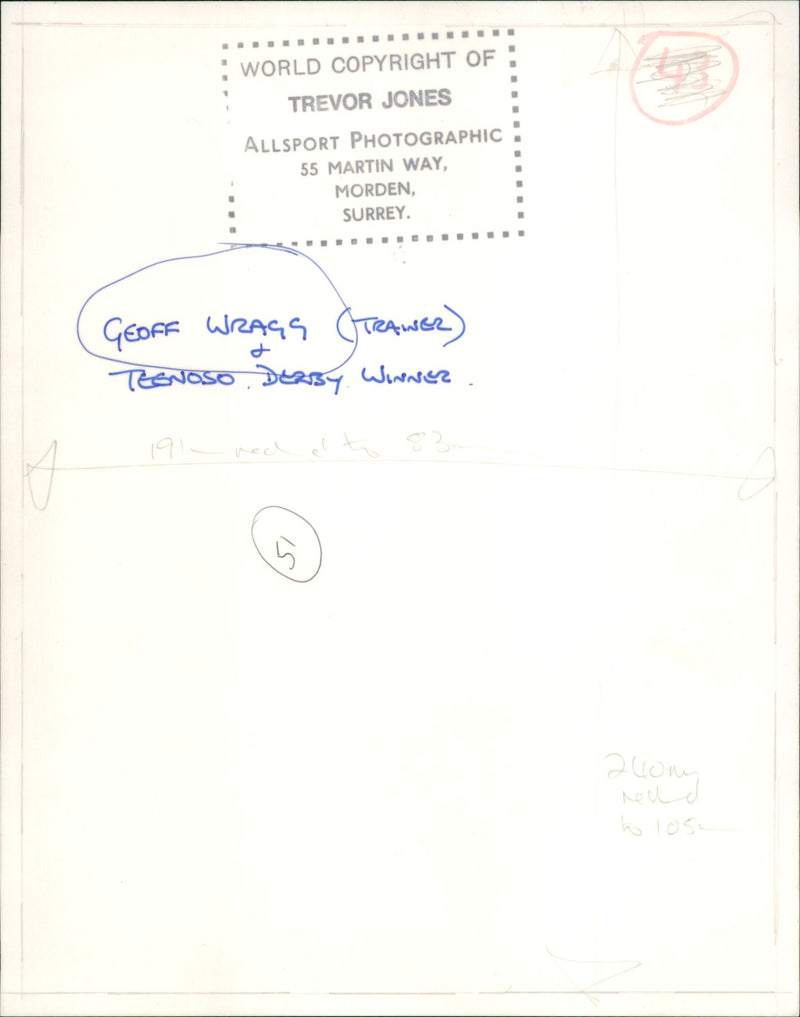 WORLD COPYRIGHT OF
TREVOR JONES
ALLSPORT PHOTOGRAPHIC
55 MARTIN WAY,
MORDEN,
SURREY.
43
GEOFF WRAGG (TRAINER)
&
TEENOSO. DERBY. WINNER.
191 to 83
5
240mm
to 105